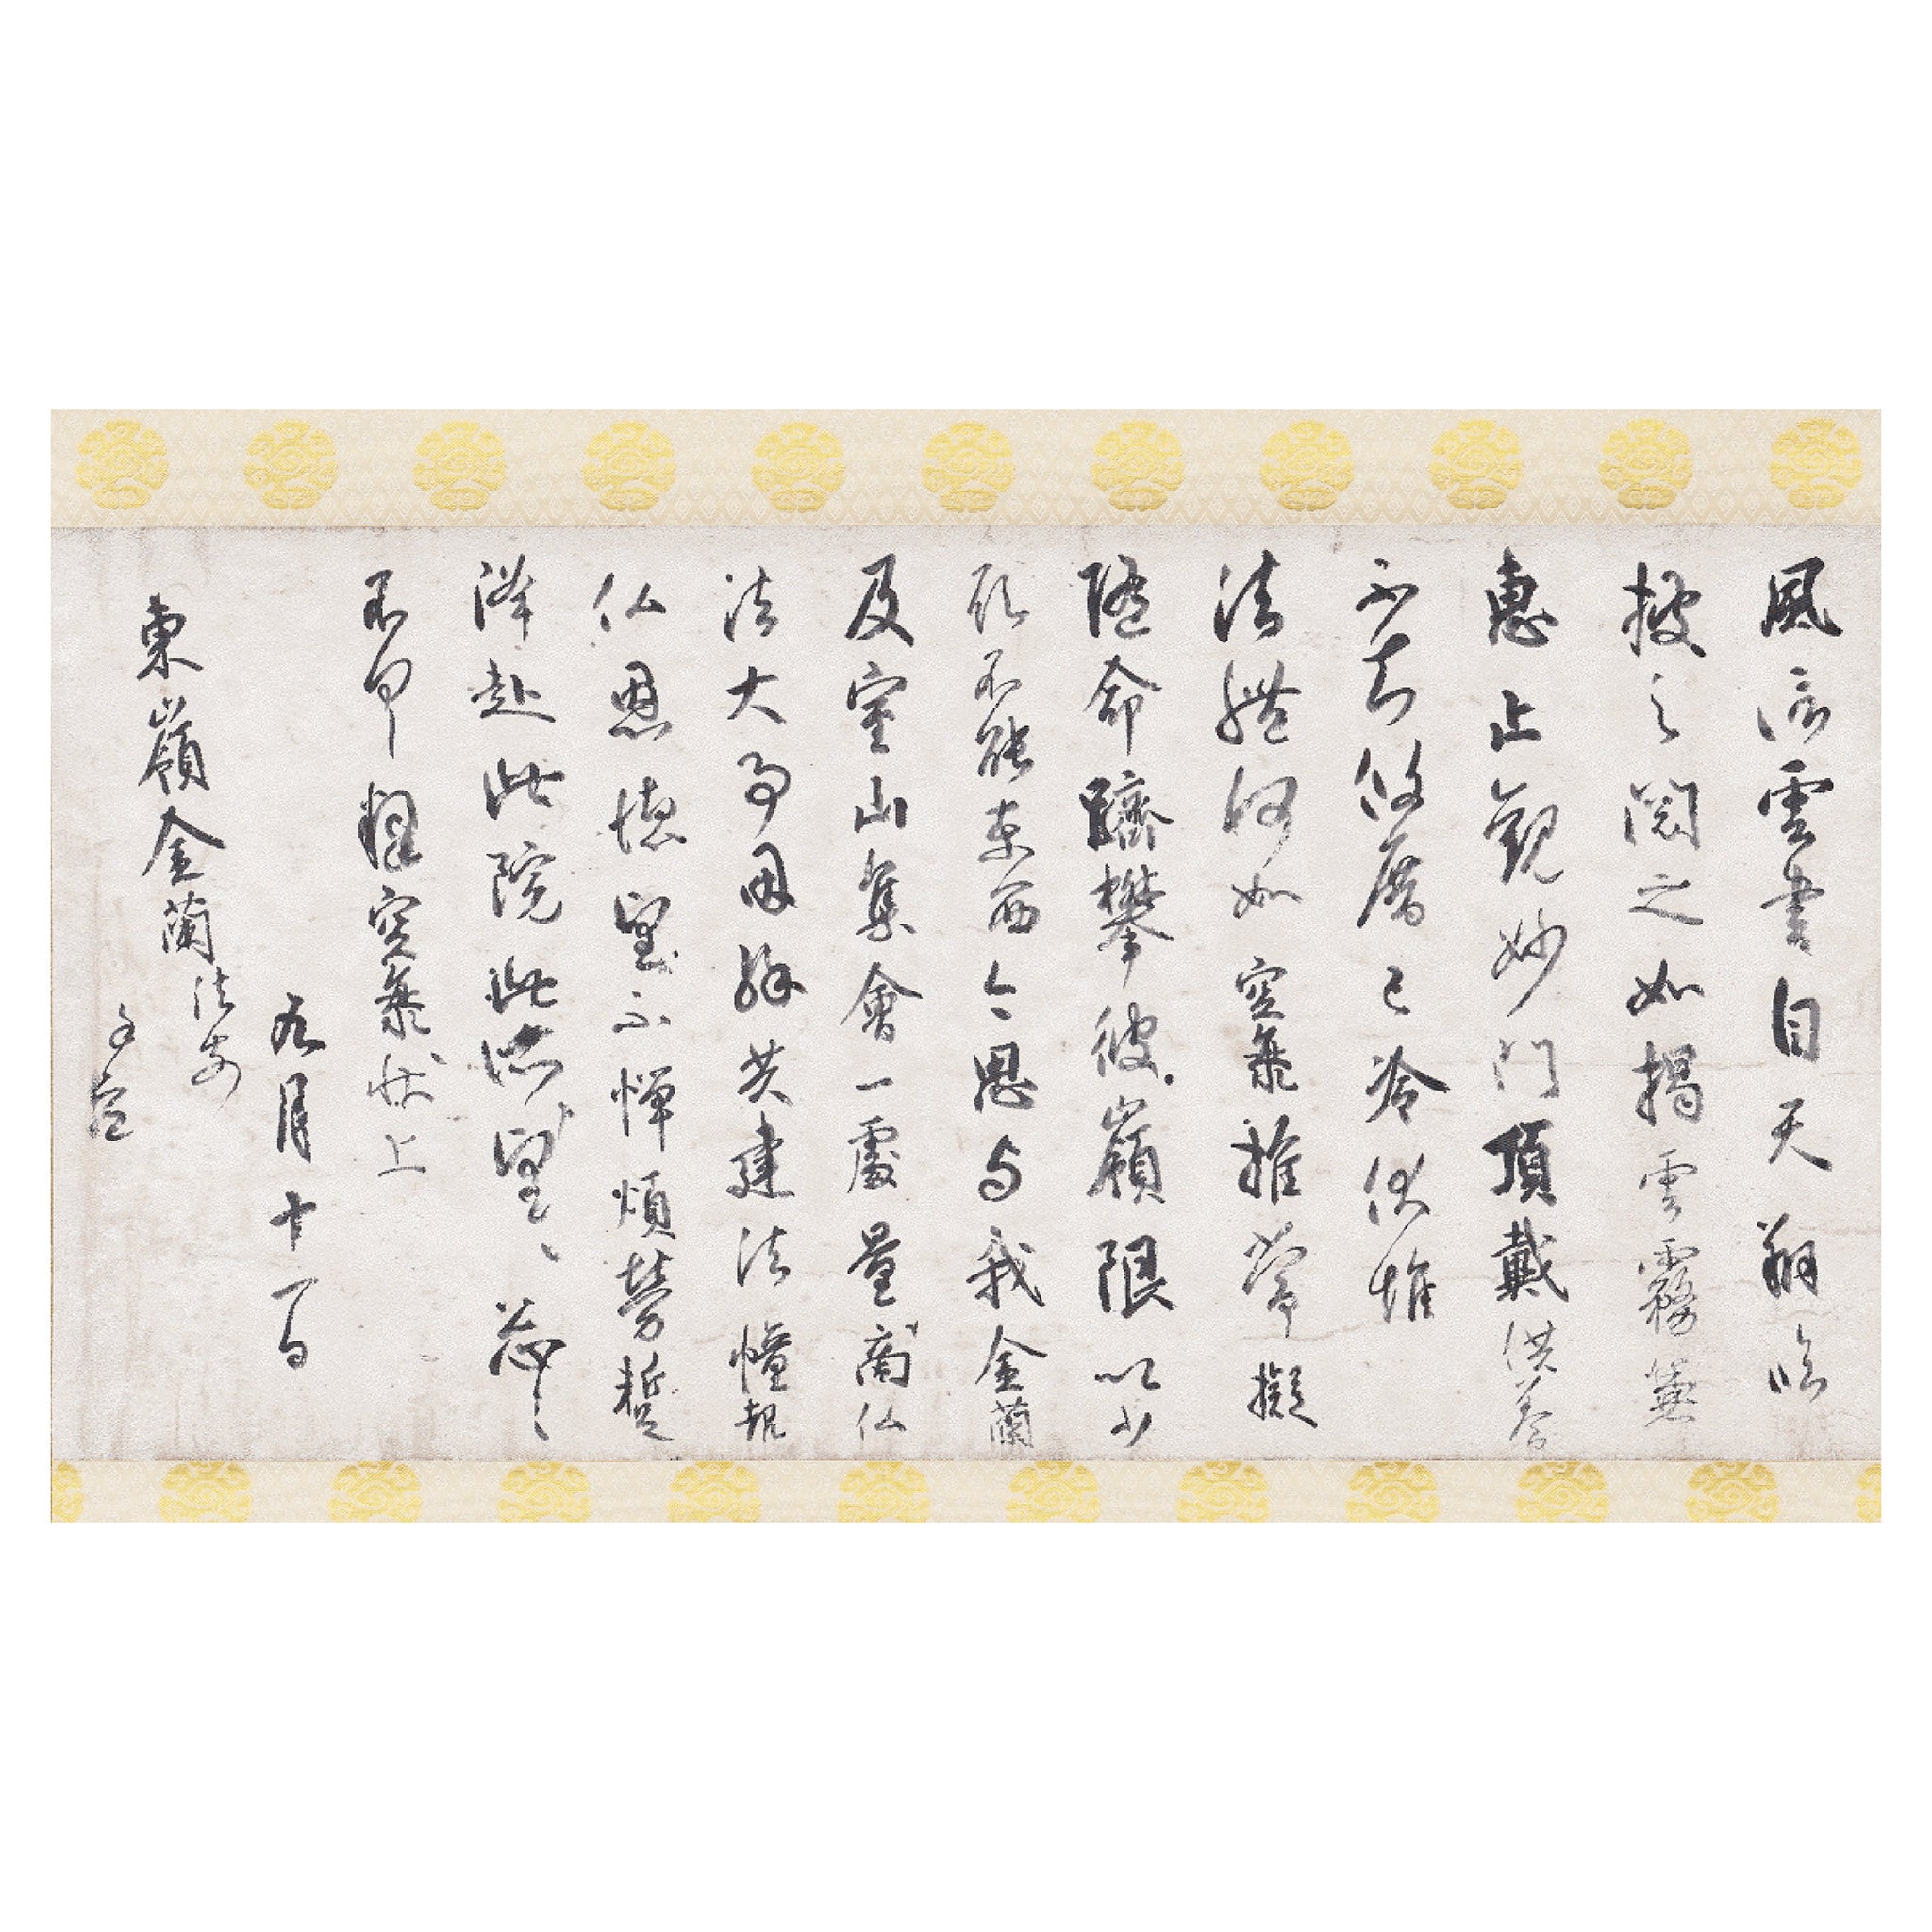 風信雲書自天翔臨
披之閲之如掲雲霧兼
恵止観妙門頂戴供養
不知攸厝已冷伏惟
法體何如空海推常擬
随命躋攀彼嶺限以少
願不能東西今思与我金蘭
及室山集會一處量商仏
法大事因縁共建法幢報
仏恩徳望不憚煩労蹔
降赴此院此所望〻忩〻
不具釋空海状上
九月十一日
東嶺金蘭法前
謹空